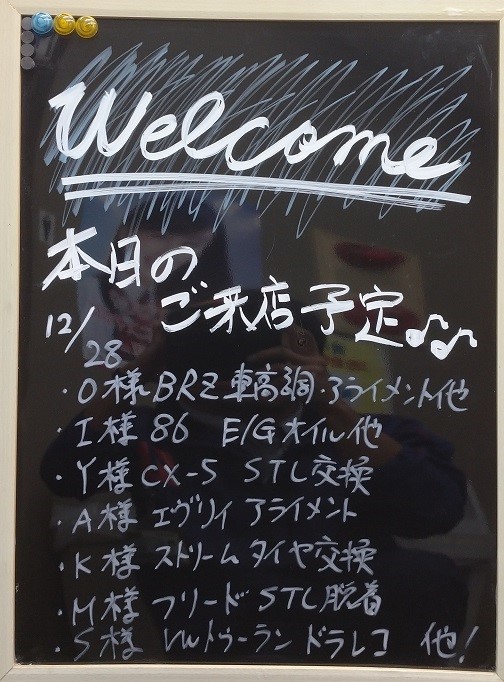 Welcome
本日の
ご来店予定♪♪
12/28
・O様 BRZ 車高調・アライメント他
・I様 86 E/Gオイル他
・Y様 CX-5 STL交換
・A様 エヴリィ アライメント
・K様 ストリーム タイヤ交換
・M様 フリード STL脱着
・S様 VWトゥーラン ドラレコ 他!